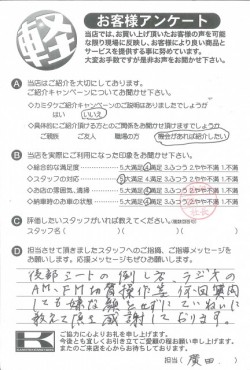 軽
お客様アンケート
当店では、お買い上げ頂いたお客様の声を可能
な限り現場に反映し、お客様により良い商品と
サービスを提供する事に努めています。
大変お手数ですが是非お声をお聞かせ下さい。
A 当店はご紹介を大切にしております。
ご紹介キャンペーンについてお聞かせ下さい。
◇カミタケご紹介キャンペーンのご説明はありましたでしょうか
はい いいえ
◇具体的にご紹介頂ける方とのご関係をお聞かせ頂けますでしょうか
ご親族 ご友人 職場の方 機会があれば紹介したい
B 当店を実際にご利用になった印象をお聞かせ下さい。
◇総合的な満足度 5.大満足 4.満足 3.ふつう 2.やや不満 1.不満
◇スタッフの対応 5.大満足 4.満足 3.ふつう 2.やや不満 1.不満
◇お店の雰囲気、清掃 5.大満足 4.満足 3.ふつう 2.やや不満 1.不満
◇納車時のお車の状態 5.大満足 4.満足 3.ふつう 2.やや不満 1.不満
C 評価したいスタッフがいれば教えてください。
スタッフ名( )( )( )
D 担当させて頂きましたスタッフへのご指摘、ご指導メッセージを
お願いします。応援メッセージもぜひお願いします。
後部シートの倒し方、ラジオの
AM、FM切替操作等、何回質問
しても嫌な顔をせずに ていねいに
教えて頂き感謝しております。
ご協力に心よりお礼を申し上げます。
今後とも宜しくお引き立てご愛顧の程お願い申し上げます。
またのご来店を心からお待ちしております。
担当( 廣田 )